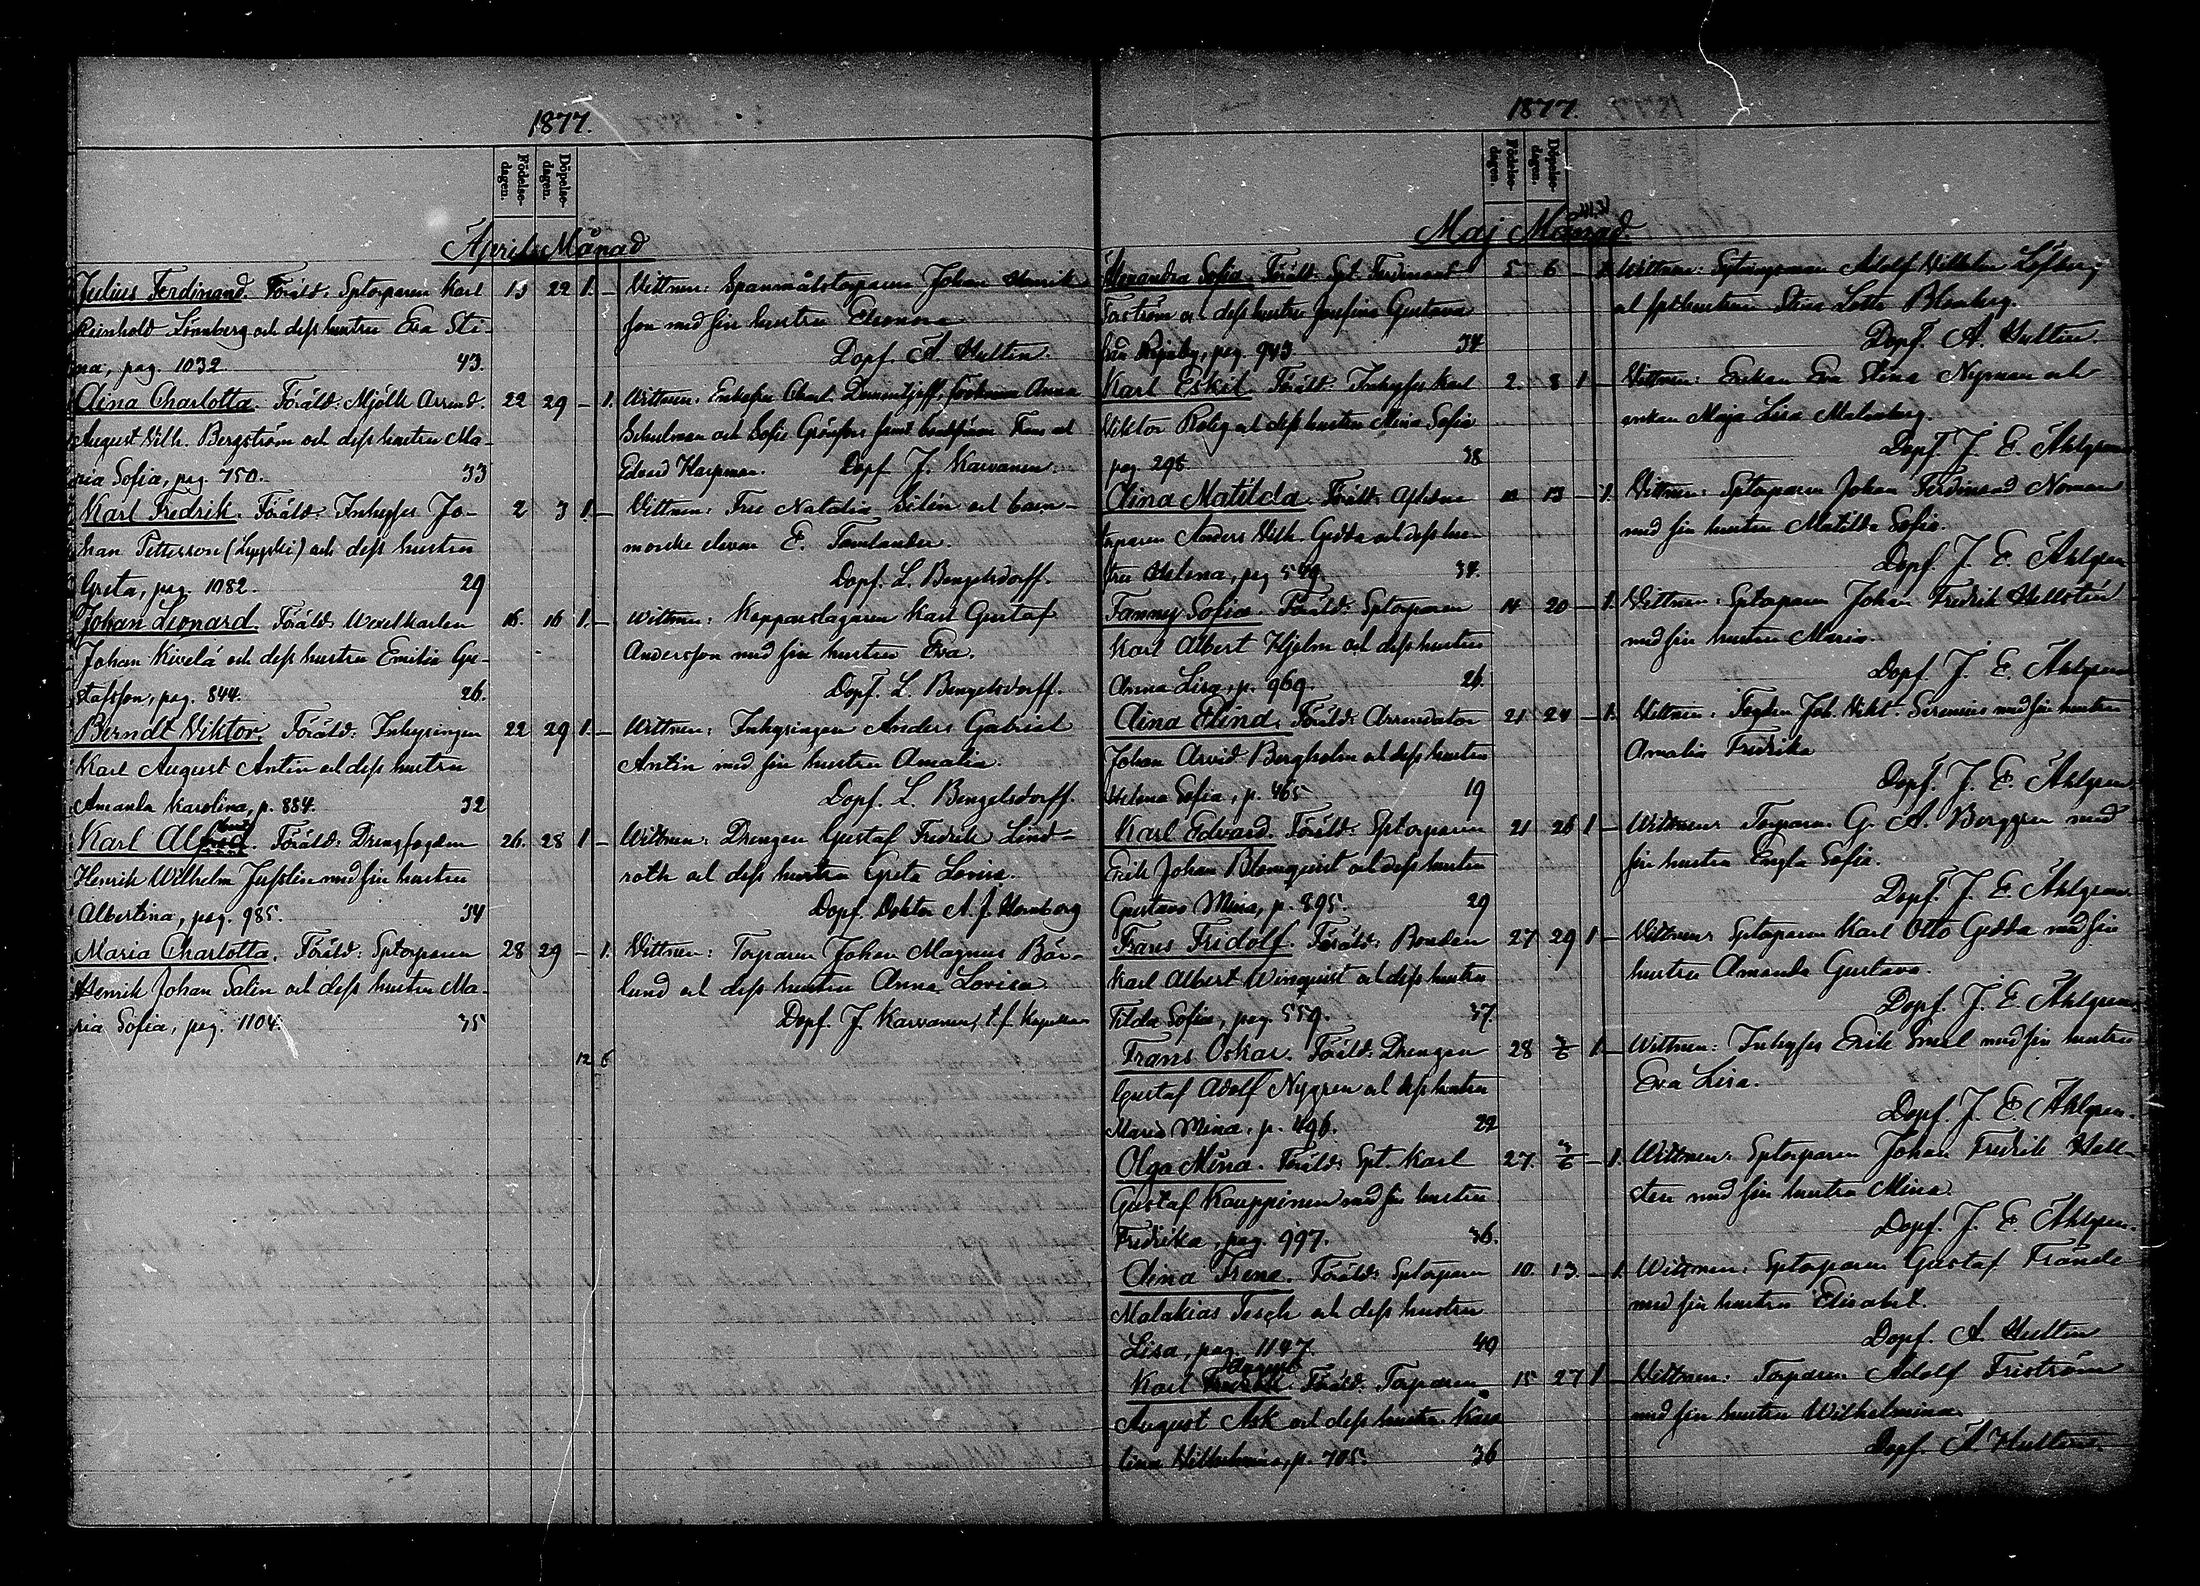 1877.
Födelse-dagen.
Döpelse-dagen.
April Månad
Julius Ferdinand. Föräld: Sptorparen Karl 15 22 1. –
Reinhold Lönnberg och deſs hustru Eva Sti-
na, pag. 1032. 43.
Vittnen: Spanmålstorparen Johan Henrik-
ſon med ſin hustru Eleonora
Dopf. A. Hulten.
Aina Charlotta. Föräld: Mjölk Arrend. 22 29 – 1.
August Vilh. Bergström och deſs hustru Ma-
ria Sofia, pag. 750. 33
Vittnen: Enkefru Charl. Fröknarna Anna
Schulman och Sofie
Edvard Karpman. Dopf J. Karvanen.
Karl Fredrik. Föräld: Inhyſes Jo- 2 3 1. –
han Petterson (Lyyski) och deſs hustru
Greta, pag. 1082. 29
Vittnen: Fru Natalia Silén och barn-
morske eleven E. Tamlander.
Dopf. L. Bengelsdorff.
Johan Leonard. Föräld: Wexelkarlen 16. 16 1. –
Johan Kivelä och deſs hustru Emilia Gu-
stafsſon, pag. 844. 26.
Wittnen: Kopparslagaren Karl Gustaf
Andersſon med ſin hustru Eva.
Dopf. L. Bengelsdorff.
Berndt Viktor. Föräld: Inhysingen 22 29 1. –
Karl August Antin och deſs hustru
Amanda Karolina, p. 884. 32
Wittnen: Inhysingen Anders Gabriel
Antin med ſin hustru Amalia.
Dopf. L. Bengelsdorff.
Karl Alfred. Föräld: Drengfogden 26. 28 1 –
Henrik Wilhelm Juſslin med ſin hustru
Albertina, pag. 985. 34
Wittnen: Drengen Gustaf Fredrik Lind-
roth och deſs hustru Greta Lovisa.
Dopf. Doktor A. J. Hornborg
Maria Charlotta. Föräld: Sptorparen 28 29 – 1.
Henrik Johan Salin och deſs hustru Ma-
ria Sofia, pag. 1104. 35
Vittnen: Torparen Johan Magnus Bär-
lund och deſs hustru Anna Lovisa
Dopf. J. Karvanen, t.f. Kapellan
12 6
1877.
Födelse-dagen.
Döpelse-dagen.
Maj Månad.
Alexandra Sofia. Föräld: Spt. Ferdinand 5 6 – 1.
Forström och deſs hustru Josefina Gustava
pag. 943 34
Wittnen: Adolf Vilhelm Löfberg
och hustrun Stina Lotta Blomberg.
Dopf. A. Hulten
Karl Eskil. Föräld: Inhyſes Karl 2. 8 1 –
Viktor Rolig och deſs hustru Mina Sofia
pag. 298. 38
Vittnen: Enkan Eva Stina Nyman och
enkan Maja Lisa Malmberg.
Dopf. J. E. Åhlgren
Aina Matilda. Föräld: Afſkedne 10 13 – 1.
torparen Anders Vilh. Gedda och deſs hus-
tru Helena, pag 549. 34.
Vittnen: Sptorparen Johan Ferdinand Noman
med ſin hustru Matilda Sofia.
Dopf. J. E. Åhlgren
Fanny Sofia. Föräld: Sptorparen 14 20 – 1.
Karl Albert Hjelm och deſs hustru
Anna Lisa, p. 969. 26.
Vittnen: Sptorparen Johan Fredrik Hellstén
med ſin hustru Maria.
Dopf. J. E. Åhlgren
Aina Elind. Föräld: Arrendator 21 24 – 1.
Johan Arvid Bergholm och deſs hustru
Helena Sofia, p. 465 19
Vittnen: Fogden Joh. Vikt. Serenius med ſin hustru
Amalia Fredrika
Dopf. J. E. Åhlgren
Karl Edvard. Föräld: Sptorparen 21 26 1 –
Erik Johan Blomqvist och deſs hustru
Gustava Mina, p. 895. 29
Wittnen: Torparen G. A. Berggren med
ſin hustru Engla Sofia.
Dopf. J. E. Åhlgren
Frans Fridolf. Föräld: Bonden 27 29 1 –
Karl Albert Winqvist och deſs hustru
Tilda Sofia, pag. 559. 37.
Vittnen: Sptorparen Karl Otto Gedda med ſin
hustru Amanda Gustava.
Dopf. J. E. Åhlgren
Frans Oskar. Föräld: Drengen 28 3/6 1. –
Gustaf Adolf Nygren och deſs hustru
Maria Mina, p. 496. 22
Wittnen: Inhyſes Erik Smal med ſin hustru
Eva Lisa.
Dopf. J. E. Åhlgren.
Olga Mina. Föräld: Spt. Karl 27. 3/6 – 1.
Gustaf Kauppinen med ſin hustru
Fredrika, pag. 997. 36.
Wittnen: Sptorparen Johan Fredrik Hell-
sten med ſin hustru Mina.
Dopf. J. E. Åhlgren.
Aina Irene. Föräld: Sptorparen 10. 13. – 1.
Malakias Tesch och deſs hustru
Lisa, pag. 1147. 40
Wittnen: Sptorparen Gustaf Frände
med ſin hustru Elisabet.
Dopf. A. Hulten
Karl August Föräld: Torparen 15 27 1 –
August Ask och deſs hustru Karo
lina Wilhelmina, p. 705. 36
Vittnen: Torparen Adolf Friström
med ſin hustru Wilhelmina
Dopf. A Hulten.